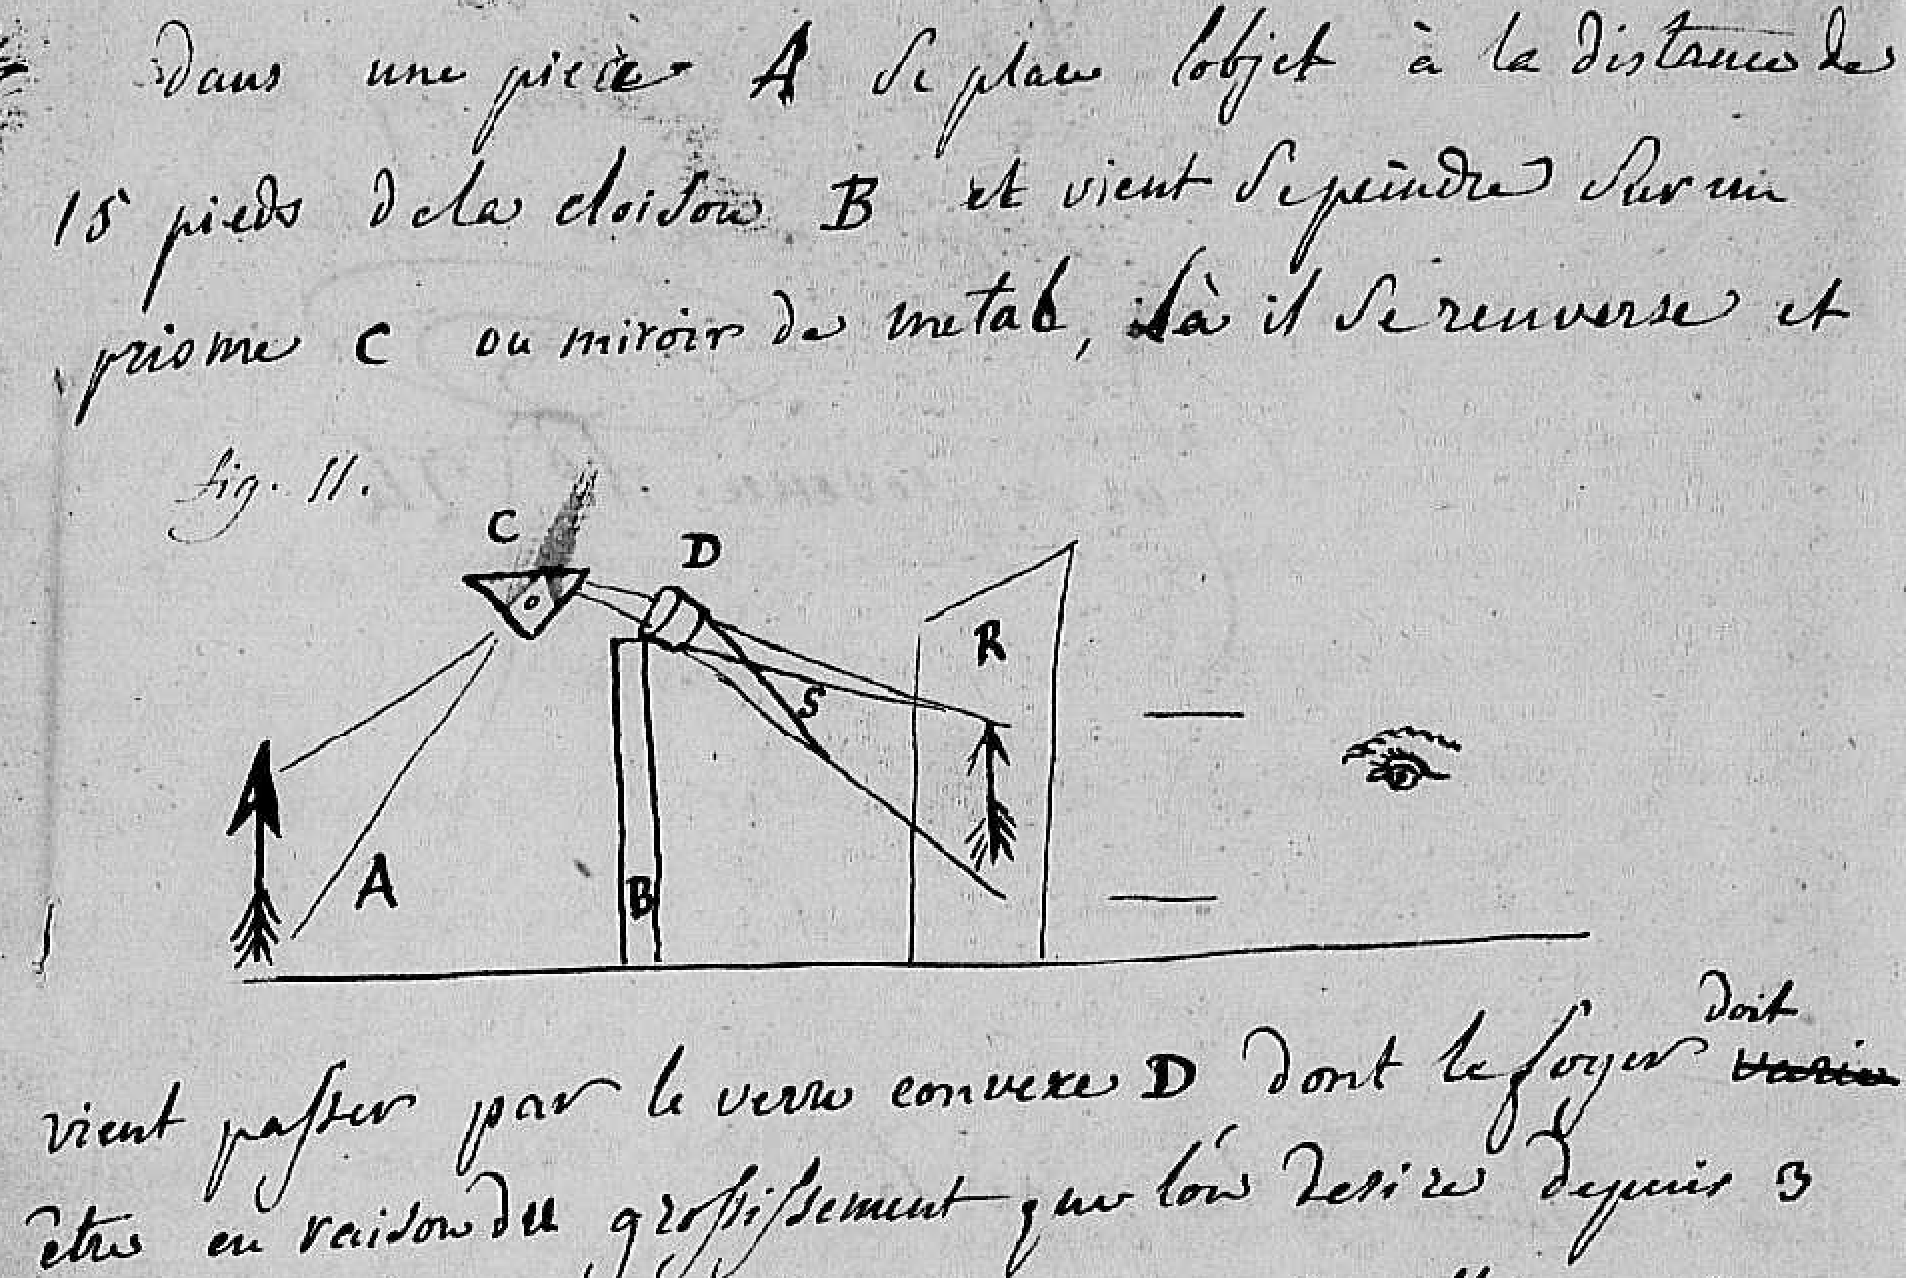 Dans une pièce A se place l'objet à la distance de
15 pieds de la cloison B et vient se peindre sur un
prisme C ou miroir de metal, là il se renverse et
fig. 11.
C
D
R
S
A
B
doit
vient passer par le verre convexe D dont le foyer varie
être en raison du grossissement que l'on desire depuis 3